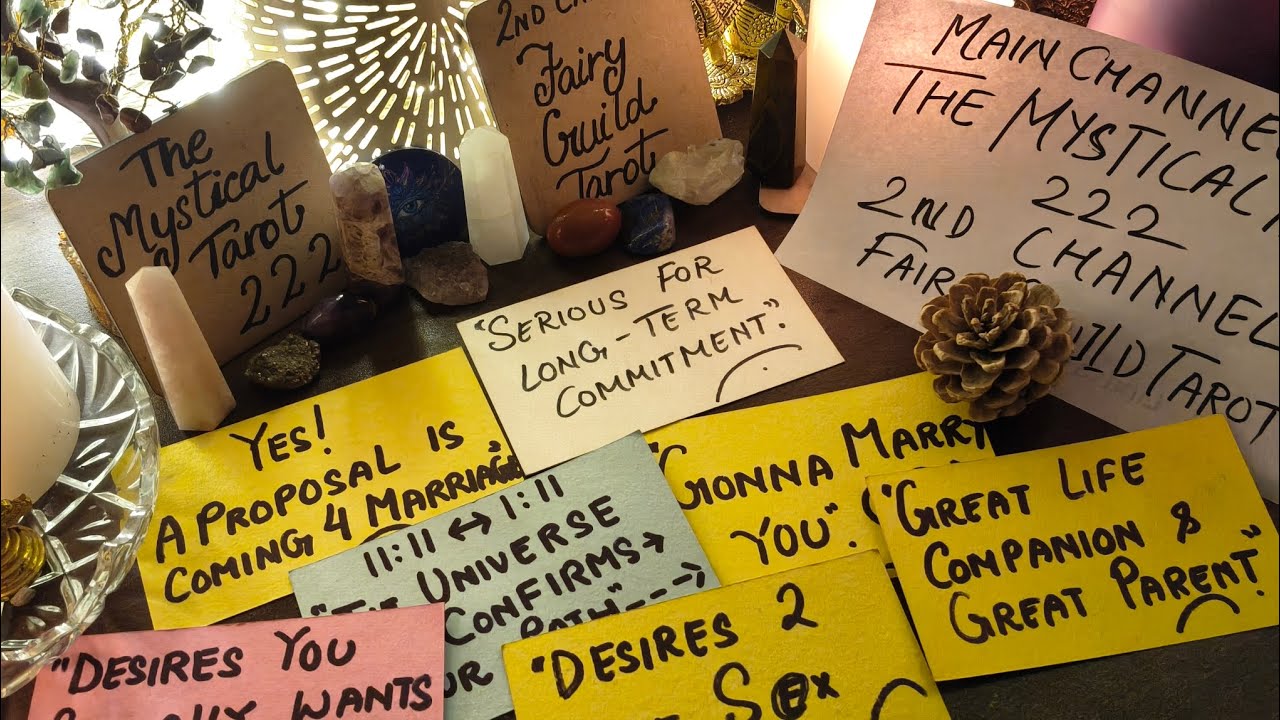 The
Mystical
Tarot
222
2ND
Fairy
Guild
Tarot
MAIN CHANNE
THE MYSTICAL
222
2ND CHANNEL
FAIR
UILD TAROT
"SERIOUS FOR
LONG-TERM
COMMITMENT".
YES!
A PROPOSAL IS
COMING 4 MARRIAGE
11:11 ↔ 1:11
UNIVERSE
CONFIRMS→
"GONNA MARRY
YOU".
"GREAT LIFE
COMPANION &
GREAT PARENT".
"DESIRES YOU
WANTS
"DESIRES 2
SEX